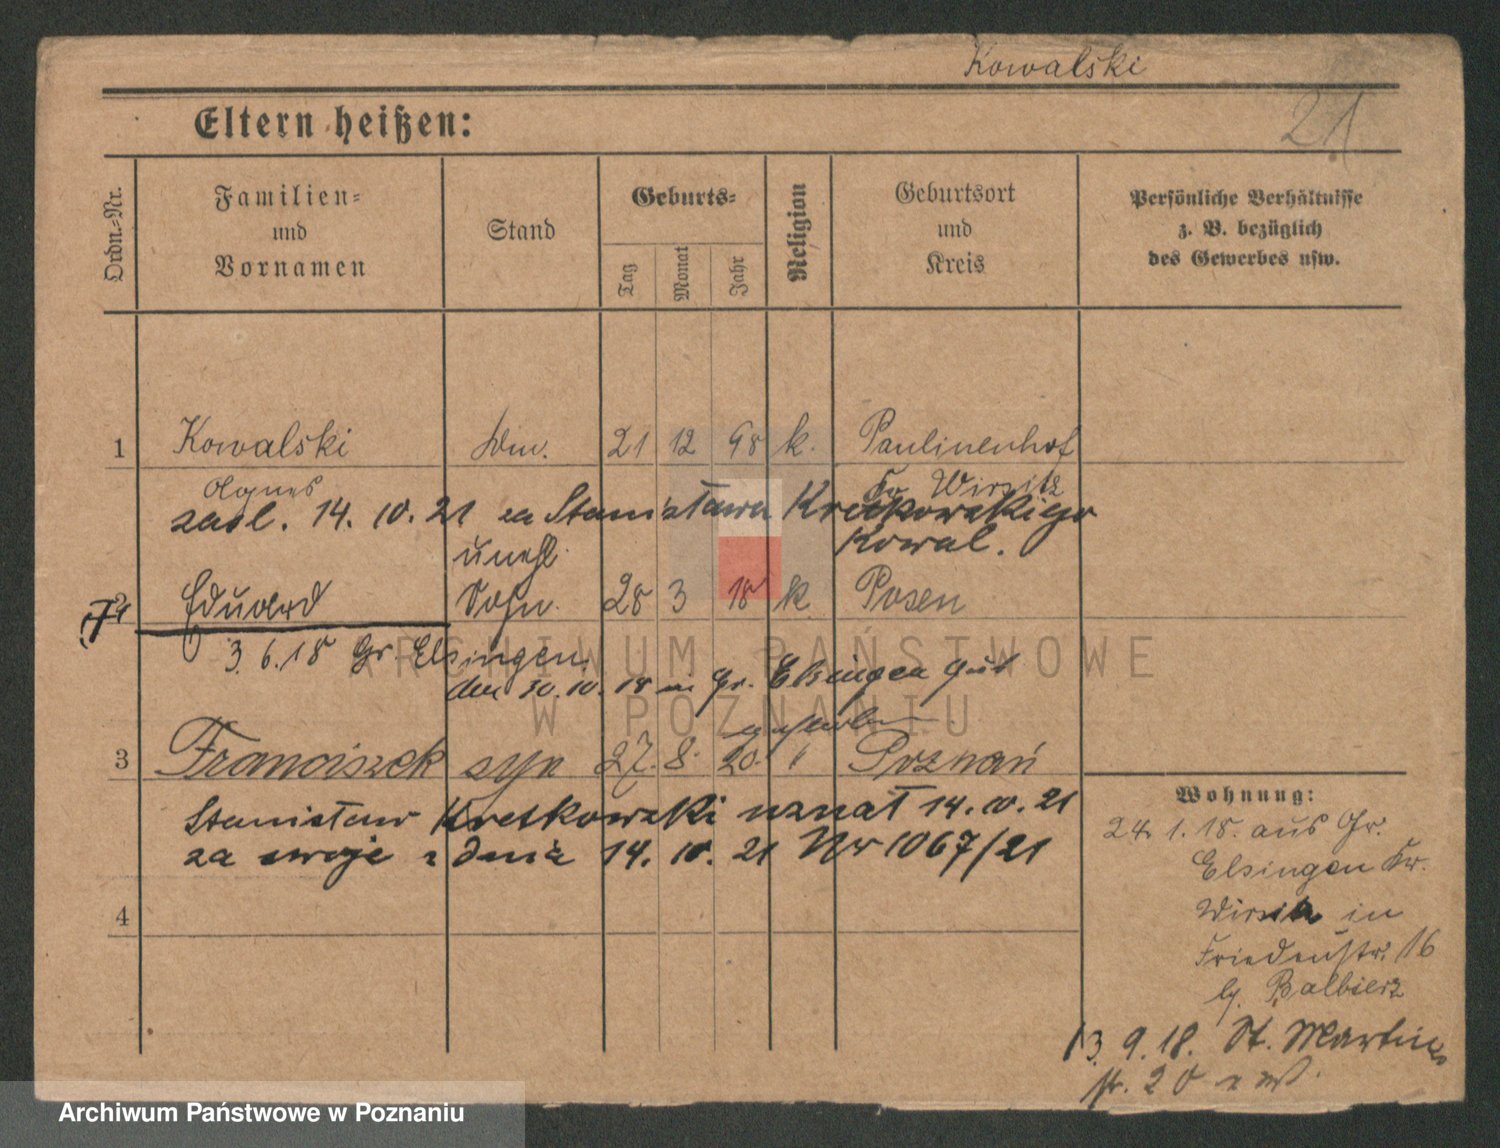 Kowalski
21
Eltern heißen:
Ordn.-Nr.
Familien-
und
Vornamen
Stand
Geburts-
Tag
Monat
Jahr
Religion
Geburtsort
und
Kreis
Persönliche Verhältnisse
z. B. bezüglich
des Gewerbes usw.
1 Kowalski 21 12 98 k. Paulinenhof
Agnes Kr. Wirsitz
zasl. 14. 10. 21 za Stanisława Kretkowskiego
Kowal.
unehl.
2 Eduard Sohn. 28 3 18 k Posen
3.6.18 Gr Elsingen.
den 30.10.18 in Gr. Elsingen Gut
gestorben.
3 Franciszek syn 27. 8. 20. " Poznań
Stanisław Kretkowski uznał 14.10.21
za swoje z dnia 14. 10. 21 Nr 1067/21
4
Wohnung:
24. 1. 18. aus Gr.
Elsingen Kr.
Wirsitz in
Friedenstr. 16
b. Balbierz
13. 9. 18. St. Martin
str. 20
ARCHIWUM PAŃSTWOWE
W POZNANIU
Archiwum Państwowe w Poznaniu